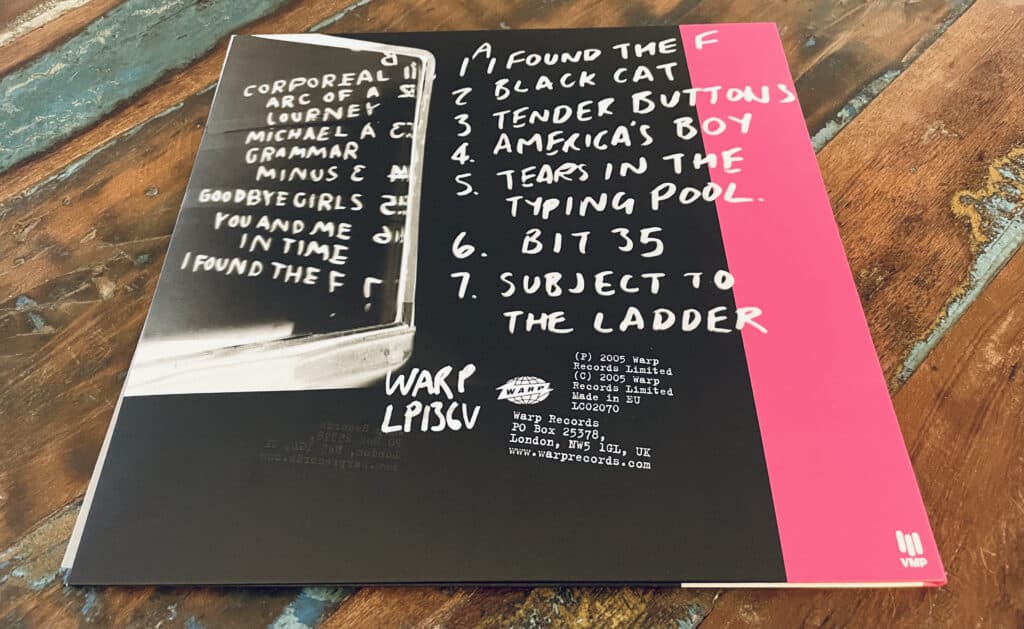 CORPOREAL
ARC OF A
LOURNEY
MICHAEL A
GRAMMAR
MINUS 3
GOODBYE GIRLS
YOU AND ME
IN TIME
I FOUND THE F
A
1 I FOUND THE F
2 BLACK CAT
3 TENDER BUTTONS
4. AMERICA'S BOY
5. TEARS IN THE
TYPING POOL.
6. BIT 35
7. SUBJECT TO
THE LADDER
WARP
LP136V
WARP
(P) 2005 Warp
Records Limited
(C) 2005 Warp
Records Limited
Made in EU
LC02070
Warp Records
PO Box 25378,
London, NW5 1GL, UK
www.warprecords.com
VMP